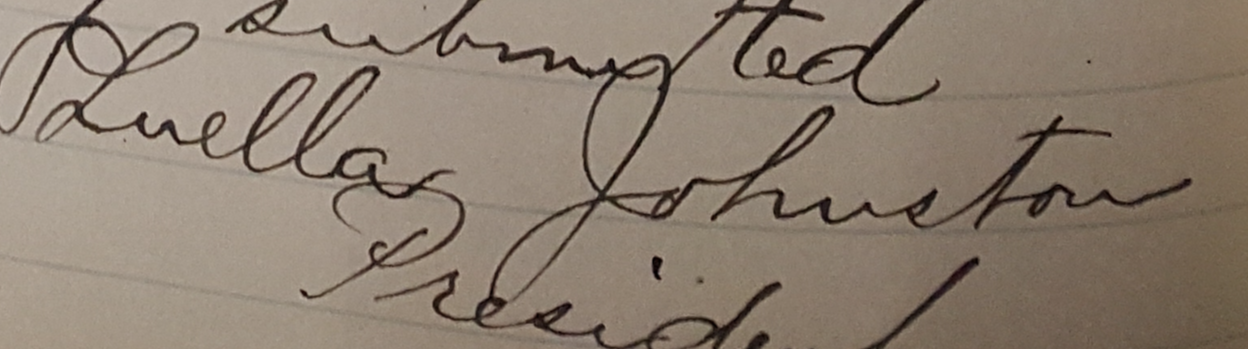 submitted
Luella Johnston
President